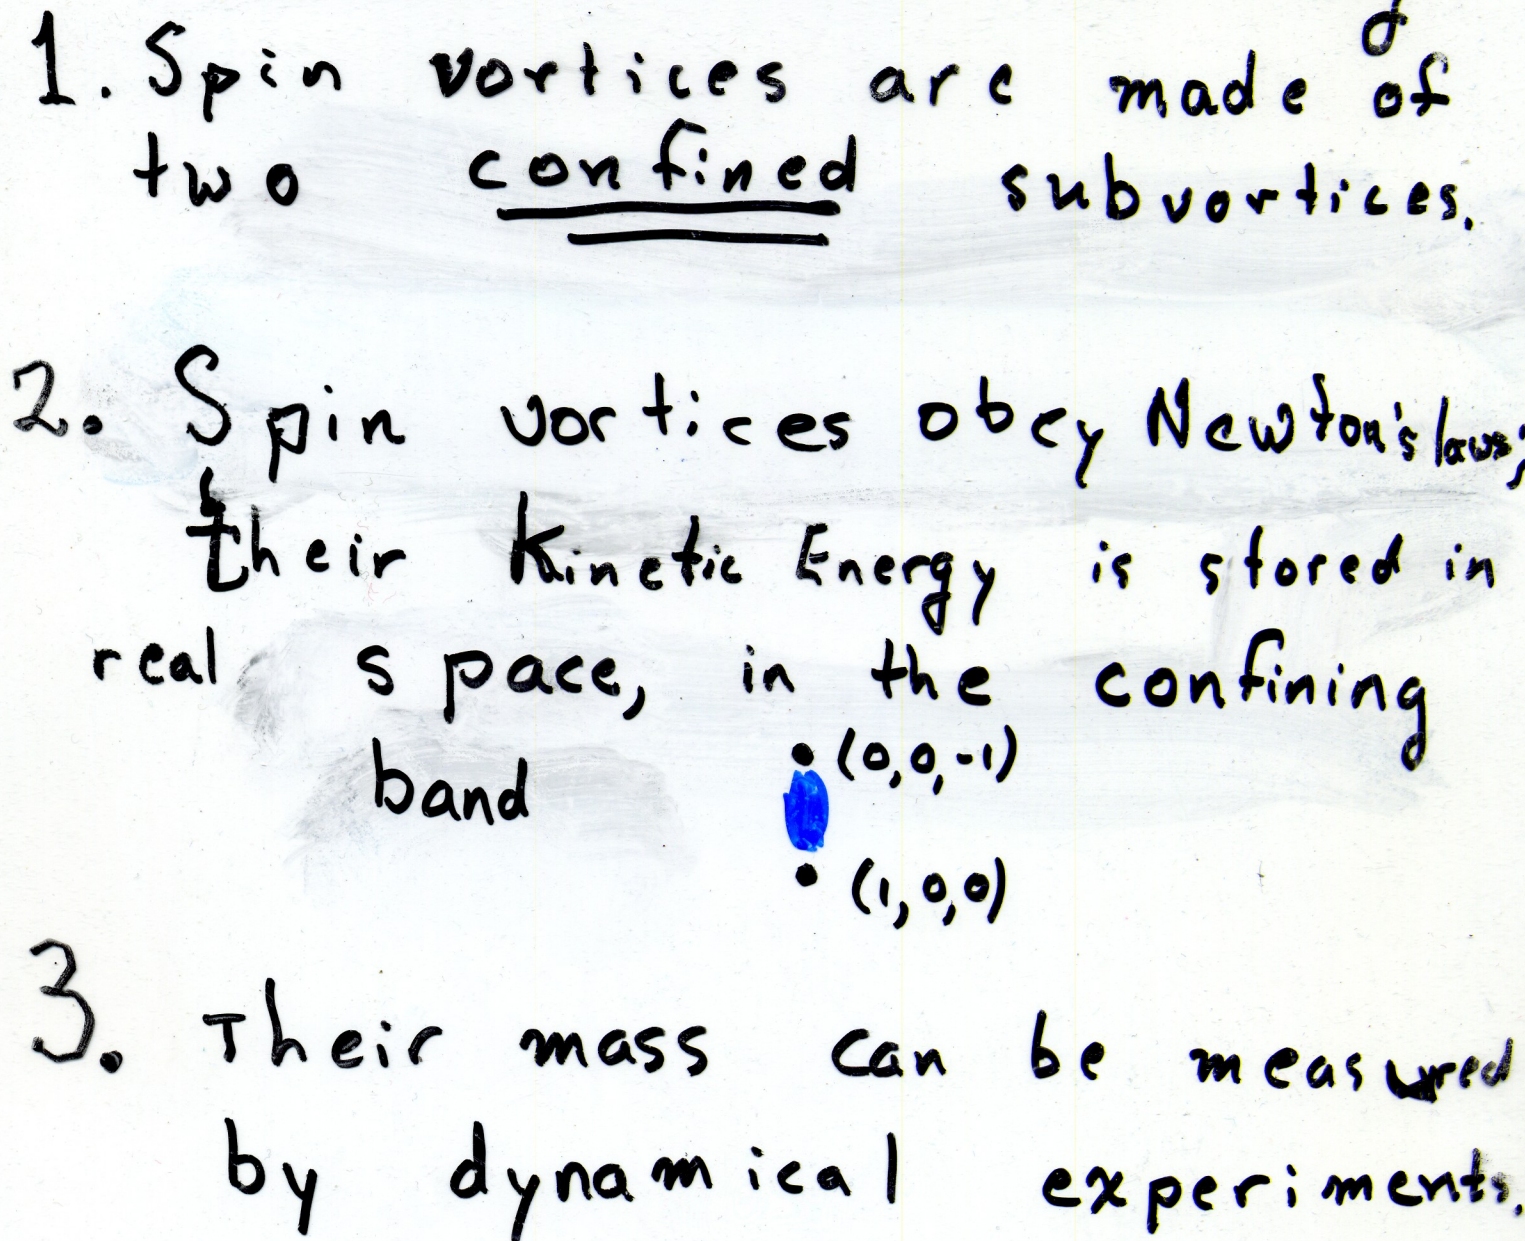 1. Spin vortices are made of
two confined subvortices.
2. Spin vortices obey Newton's laws;
their Kinetic Energy is stored in
real space, in the confining
band
(0,0,-1)
(1,0,0)
3. Their mass can be measured
by dynamical experiments.